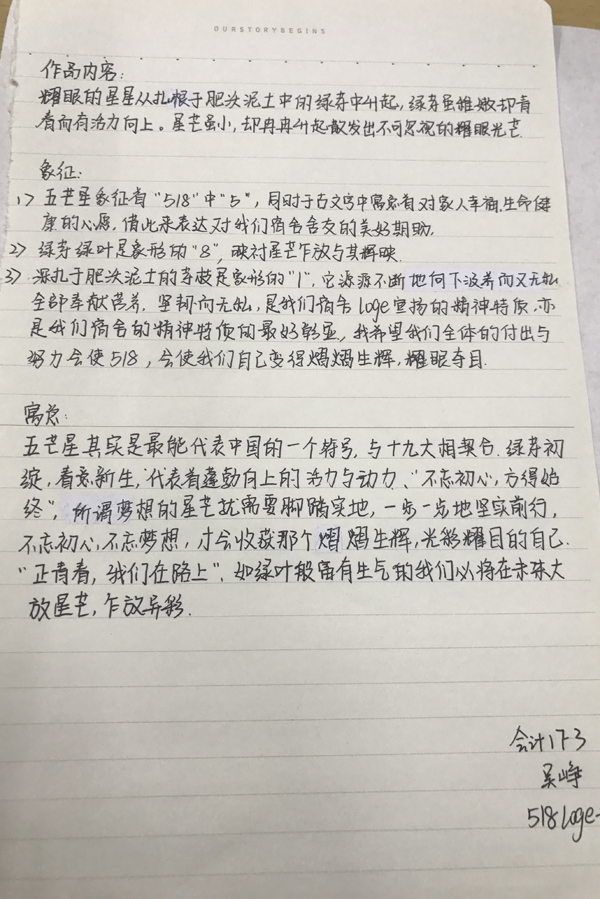 OURSTORYBEGINS
作品内容:
耀眼的星星从扎根于肥沃泥土中的绿芽中升起,绿芽虽稚嫩却青
春而有活力向上。星芒虽小,却冉冉升起散发出不可忽视的耀眼光芒.
象征:
1> 五芒星象征着"518"中"5",同时于古文字中寓意着对家人幸福.生命健
康的心愿,借此来表达对我们宿舍舍友的美好期盼.
2> 绿芽绿叶是象形的"8",映衬星芒乍放与其辉映.
3> 深扎于肥沃泥土的芽茎是象形的"1",它源源不断地向下汲养而又无私
全部奉献营养.坚韧而无私,是我们宿舍loge宣扬的精神特质.亦
是我们宿舍的精神特质的最好彰显.我希望我们全体的付出与
努力会使518,会使我们自己变得熠熠生辉,耀眼夺目.
寓意:
五芒星其实是最能代表中国的一个符号,与十九大相契合.绿芽初
绽,着意新生,代表着蓬勃向上的活力与动力、"不忘初心,方得始
终",所谓梦想的星芒就需要脚踏实地,一步一步地坚实前行,
不忘初心,不忘梦想,才会收获那个熠熠生辉,光彩耀目的自己.
"正青春,我们在路上",如绿叶般富有生气的我们必将在未来大
放星芒,乍放异彩.
会计173
吴峥
518loge